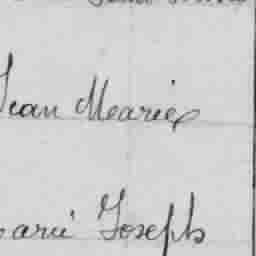 Jean Marie
arie Joseph